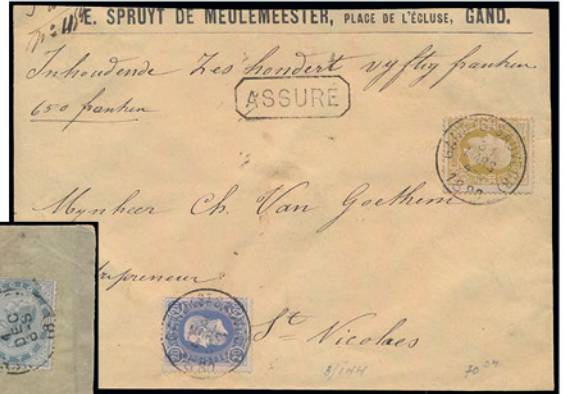 E. SPRUYT DE MEULEMEESTER, PLACE DE L'ÉCLUSE, GAND.
Inhoudende Zes hondert vyftig franken
650 franken
ASSURÉ
1880
Mynheer Ch. Van Goethem
St Nicolaes
DEC